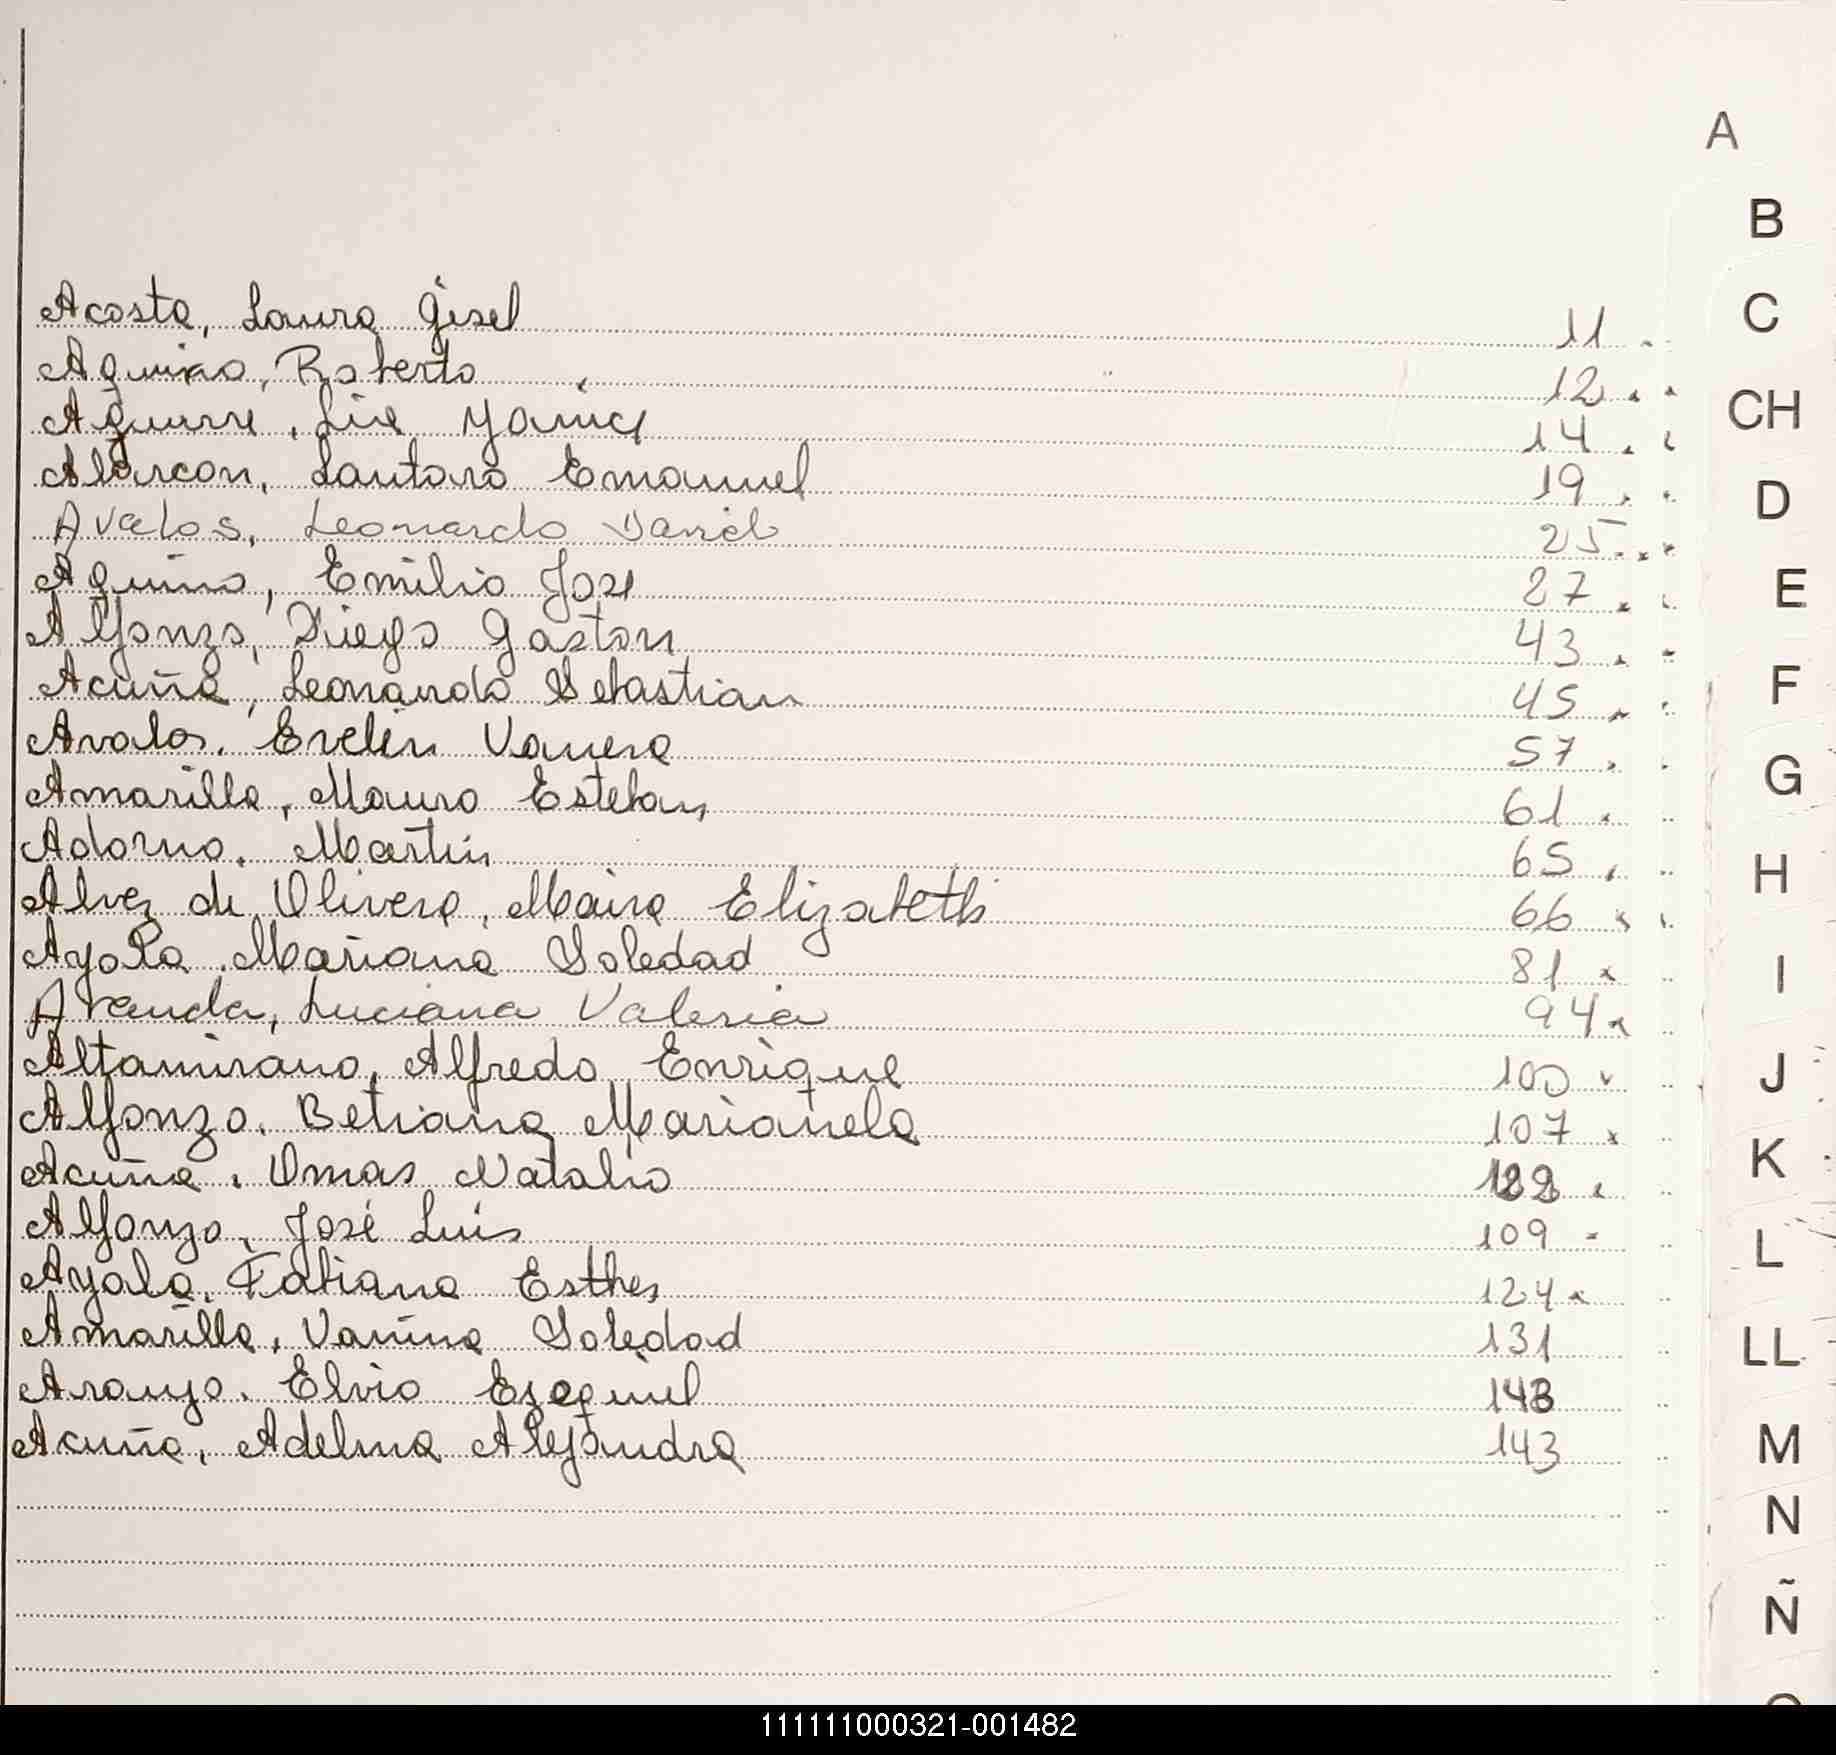 A
B
C
CH
D
E
F
G
H
I
J
K
L
LL
M
N
Ñ
Acosta, Laura Gisel 11
Aquino, Roberto 12
Aguirre, Lix Yanice 14
Alarcon, Lautaro Emanuel 19
Avalos, Leonardo Daniel 25
Aquino, Emilio Jose 27
Alfonzo, Diego Gaston 43
Acuña, Leonardo Sebastian 45
Avalos, Evelin Vanesa 57
Amarilla, Mauro Esteban 61
Adorno, Martin 65
Alvez de Olivera, Maira Elizabeth 66
Ayala, Mariana Soledad 81
Aranda, Luciana Valeria 94
Altamirano, Alfredo Enrique 100
Alfonzo, Betiana Marianela 107
Acuña, Omar Natalio
Alfonzo, José Luis 109
Ayala, Fabiana Esther 124
Amarilla, Vanina Soledad 131
Araujo, Elvio Ezequiel 143
Acuña, Adelma Alejandra 143
111111000321-001482